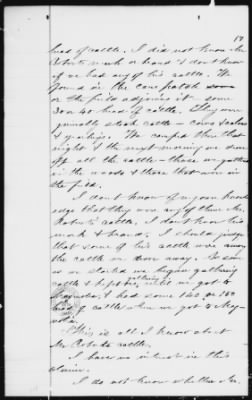 19
head of cattle. I did not know Mr.
Roberts mark or brand & don't know
if we had any of his cattle. We
found in the corn patch
or the field adjoining it some
30 or 40 head of cattle. They were
generally stock cattle - cows & calves
& yearlings. We camped there that
night & the next morning we drove
off all the cattle - those we gathered
in the woods & those that were in
the field.
I don't know of my own knowl
edge that they were any of them Mr.
Roberts cattle. I don't know his
mark & brand. I should judge
that some of his cattle were among
the cattle we drove away. As soon
as we started we began gathering
cattle & kept gathering until we got to
& had some 150 or
head of cattle when we got to
This is all I know about
Mr. Roberts cattle.
I have no interest in this
claim.
I do not know whether Mr.